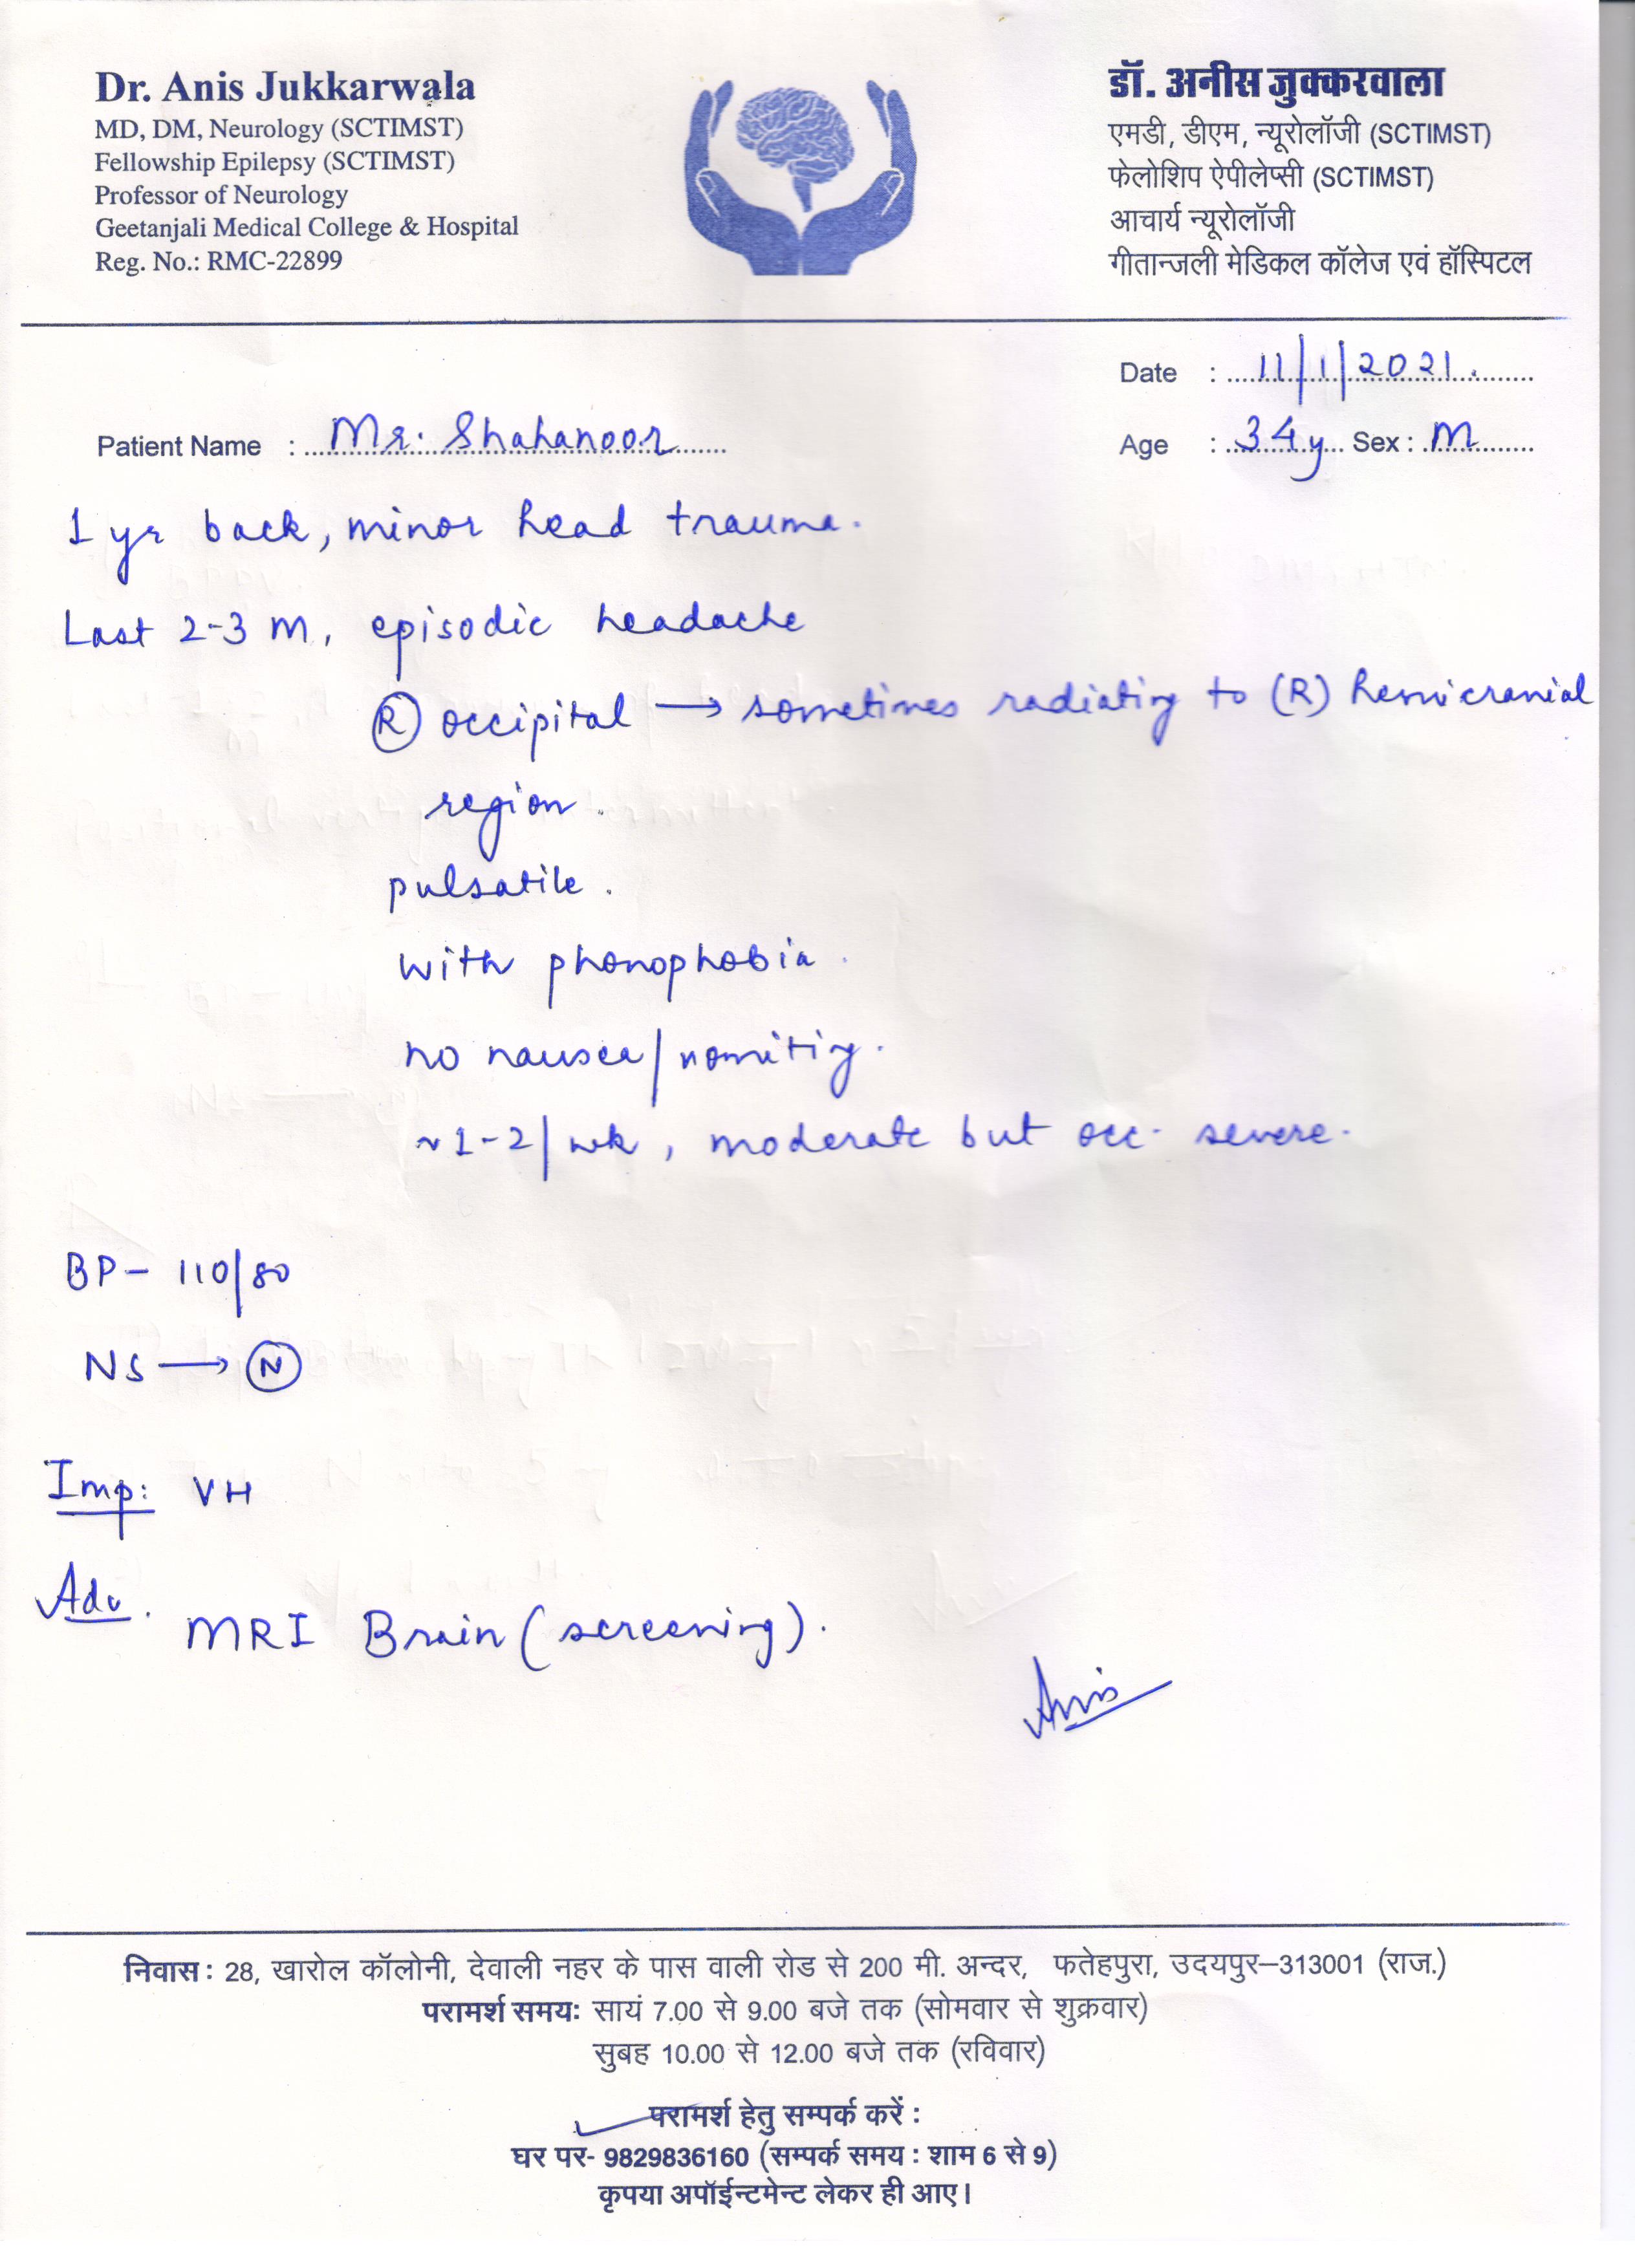 Dr. Anis Jukkarwala
MD, DM, Neurology (SCTIMST)
Fellowship Epilepsy (SCTIMST)
Professor of Neurology
Geetanjali Medical College & Hospital
Reg. No.: RMC-22899
डॉ. अनीस जुक्करवाला
एमडी, डीएम, न्यूरोलॉजी (SCTIMST)
फेलोशिप ऐपीलेप्सी (SCTIMST)
आचार्य न्यूरोलॉजी
गीतान्जली मेडिकल कॉलेज एवं हॉस्पिटल
Date : 11/1/2021.
Patient Name : Mr. Shahanoor
Age : 34y Sex : M
1 yr back, minor head trauma.
Last 2-3 m, episodic headache
(R) occipital → sometimes radiating to (R) hemicranial
region.
pulsatile.
with phonophobia.
no nausea/vomiting.
~1-2/wk, moderate but occ. severe.
BP - 110/80
NS → (N)
Imp: VH
Adv.
MRI Brain (screening).
Anis
निवास : 28, खारोल कॉलोनी, देवाली नहर के पास वाली रोड से 200 मी. अन्दर, फतेहपुरा, उदयपुर–313001 (राज.)
परामर्श समय: सायं 7.00 से 9.00 बजे तक (सोमवार से शुक्रवार)
सुबह 10.00 से 12.00 बजे तक (रविवार)
परामर्श हेतु सम्पर्क करें :
घर पर- 9829836160 (सम्पर्क समय : शाम 6 से 9)
कृपया अपॉईन्टमेन्ट लेकर ही आए।